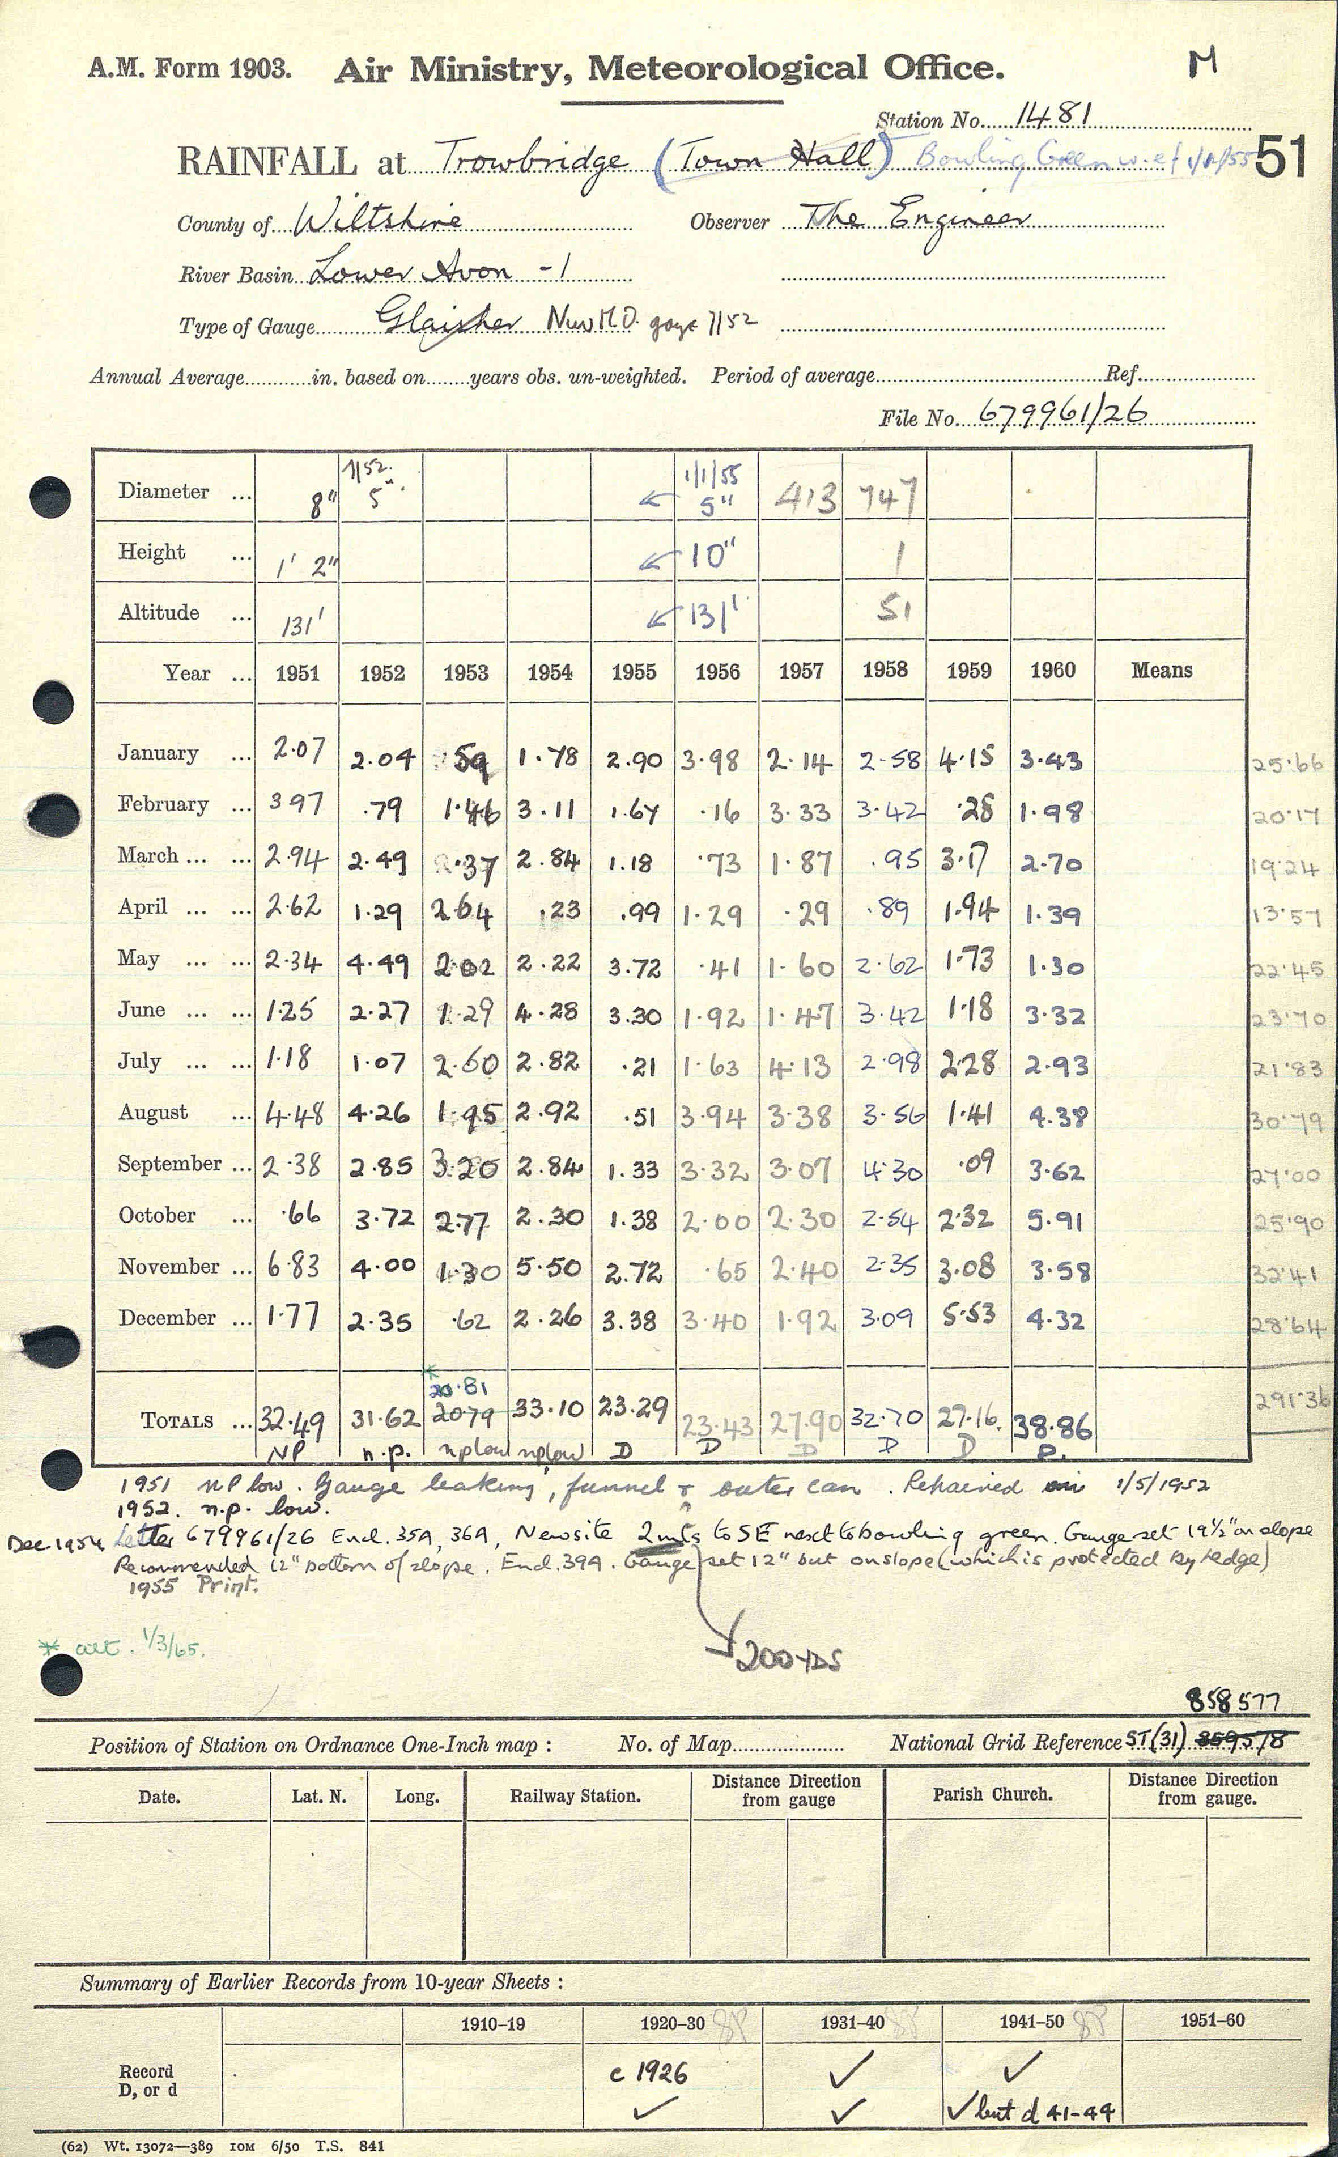 A.M. Form 1903. Air Ministry, Meteorological Office. M
Station No. 1481
RAINFALL at Trowbridge (Town Hall) Bowling Green w.e.f 1/1/55 51
County of Wiltshire Observer The Engineer
River Basin Lower Avon - 1
Type of Gauge Glaisher New M.O. gage 7/52
Annual Average in. based on years obs. un-weighted. Period of average Ref.
File No. 679961/26
7/52. 1/1/55
Diameter ... 8" 5" ← 5" 413 747
Height ... 1' 2" ← 10" 1
Altitude ... 131' ← 131' 51
Year ... 1951 1952 1953 1954 1955 1956 1957 1958 1959 1960 Means
January ... 2.07 2.04 .59 1.78 2.90 3.98 2.14 2.58 4.15 3.43 25.66
February ... 3 97 .79 1.46 3.11 1.67 .16 3.33 3.42 .28 1.98 20.17
March ... ... 2.94 2.49 2.37 2.84 1.18 .73 1.87 .95 3.17 2.70 19.24
April ... ... 2.62 1.29 2.64 .23 .99 1.29 .29 .89 1.94 1.39 13.57
May ... ... 2.34 4.49 2.02 2.22 3.72 .41 1.60 2.62 1.73 1.30 22.45
June ... ... 1.25 2.27 1.29 4.28 3.30 1.92 1.47 3.42 1.18 3.32 23.70
July ... ... 1.18 1.07 2.60 2.82 .21 1.63 4.13 2.98 2.28 2.93 21.83
August ... 4.48 4.26 1.95 2.92 .51 3.94 3.38 3.56 1.41 4.38 30.79
September ... 2.38 2.85 3.20 2.84 1.33 3.32 3.07 4.30 .09 3.62 27.00
October ... .66 3.72 2.77 2.30 1.38 2.00 2.30 2.54 2.32 5.91 25.90
November ... 6.83 4.00 1.30 5.50 2.72 .65 2.40 2.35 3.08 3.58 32.41
December ... 1.77 2.35 .62 2.26 3.38 3.40 1.92 3.09 5.53 4.32 28.64
* 20.81
TOTALS ... 32.49 31.62 2079 33.10 23.29 23.43 27.90 32.70 27.16. 38.86 291.36
NP n.p. np low np low D D D D D P.
1951 NP low. Gauge leaking, funnel & outer can. Repaired on 1/5/1952
1952. n.p. low.
Dec 1954 Letter 679961/26 Encl. 35A, 36A, New site 2 mls to SE next to bowling green. Gauge set 19½" on slope
Recommended 12" bottom of slope. Encl. 39A. Gauge set 12" but on slope (which is protected by hedge)
1955 Print.
* alt. 1/3/65.
200 YDS
858577
Position of Station on Ordnance One-Inch map : No. of Map National Grid Reference ST(31) 859578
Date. Lat. N. Long. Railway Station. Distance Direction from gauge Parish Church. Distance Direction from gauge.
Summary of Earlier Records from 10-year Sheets :
1910-19 1920-30 1931-40 1941-50 1951-60
Record c 1926 ✓ ✓
D, or d ✓ ✓ ✓ but d 41-44
(62) Wt. 13072—389 10M 6/50 T.S. 841